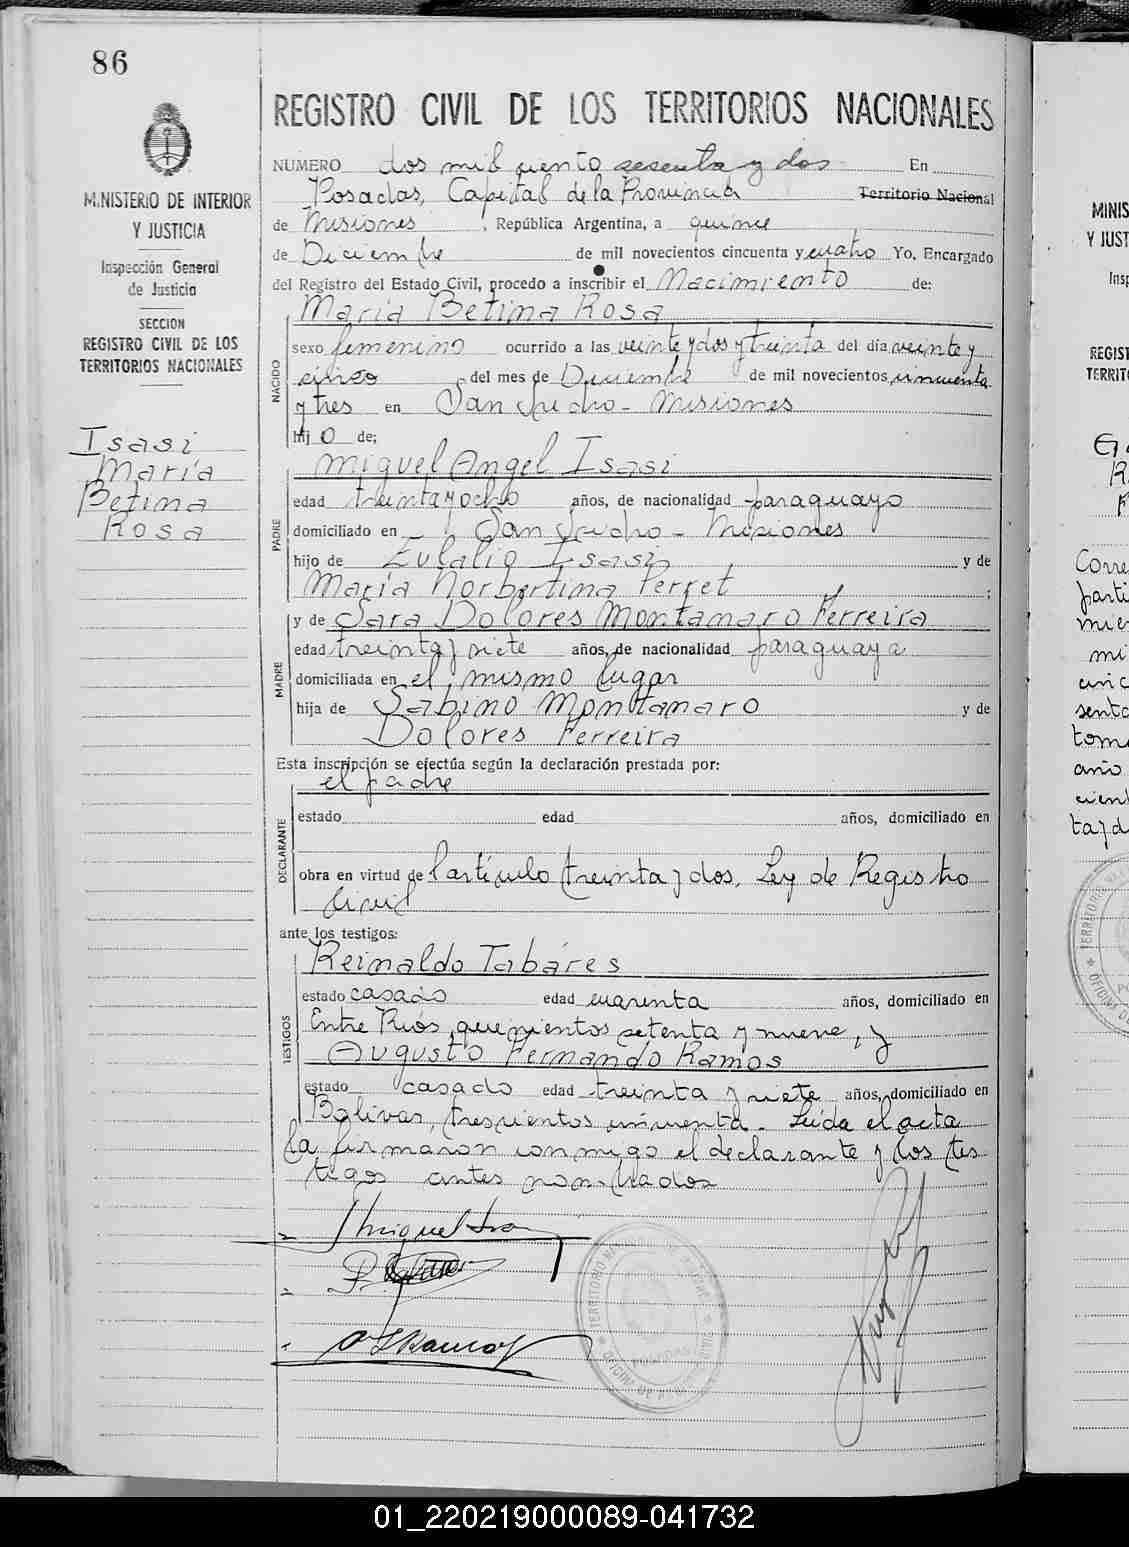 86
MINISTERIO DE INTERIOR
Y JUSTICIA
Inspección General
de Justicia
SECCION
REGISTRO CIVIL DE LOS
TERRITORIOS NACIONALES
Isasi
María
Betina
Rosa
REGISTRO CIVIL DE LOS TERRITORIOS NACIONALES
NUMERO dos mil ciento sesenta y dos En
Posadas, Capital de la Provincia Territorio Nacional
de Misiones, República Argentina, a quince
de Diciembre de mil novecientos cincuenta y cuatro Yo, Encargado
del Registro del Estado Civil, procedo a inscribir el Nacimiento de:
NACIDO
María Betina Rosa
sexo femenino ocurrido a las veinte y dos y treinta del día veinte y
cinco del mes de Diciembre de mil novecientos cincuenta
y tres en San Pedro - Misiones
hij o de;
PADRE
Miguel Angel Isasi
edad treinta y ocho años, de nacionalidad paraguayo
domiciliado en San Pedro - Misiones
hijo de Eulalio Isasi y de
María Norbertina Perret ;
MADRE
y de Sara Dolores Montanaro Ferreira
edad treinta y siete años, de nacionalidad paraguaya
domiciliada en el mismo lugar
hija de Sabino Montanaro y de
Dolores Ferreira
Esta inscripción se efectúa según la declaración prestada por:
DECLARANTE
el padre
estado edad años, domiciliado en
obra en virtud de l artículo treinta y dos, Ley de Registro
Civil
ante los testigos:
TESTIGOS
Reinaldo Tabáres
estado casado edad cuarenta años, domiciliado en
Entre Ríos, quinientos setenta y nueve, y
Augusto Fernando Ramos
estado casado edad treinta y siete años, domiciliado en
Bolivar, trescientos cincuenta - Leída el acta
la firmaron conmigo el declarante y los tes
tigos antes nombrados
A F Ramos
MINIS
Y JUST
Insp
REGIST
TERRIT
Corre
parti
mien
mi
cinc
senta
toma
año
cient
ta y d
01_220219000089-041732